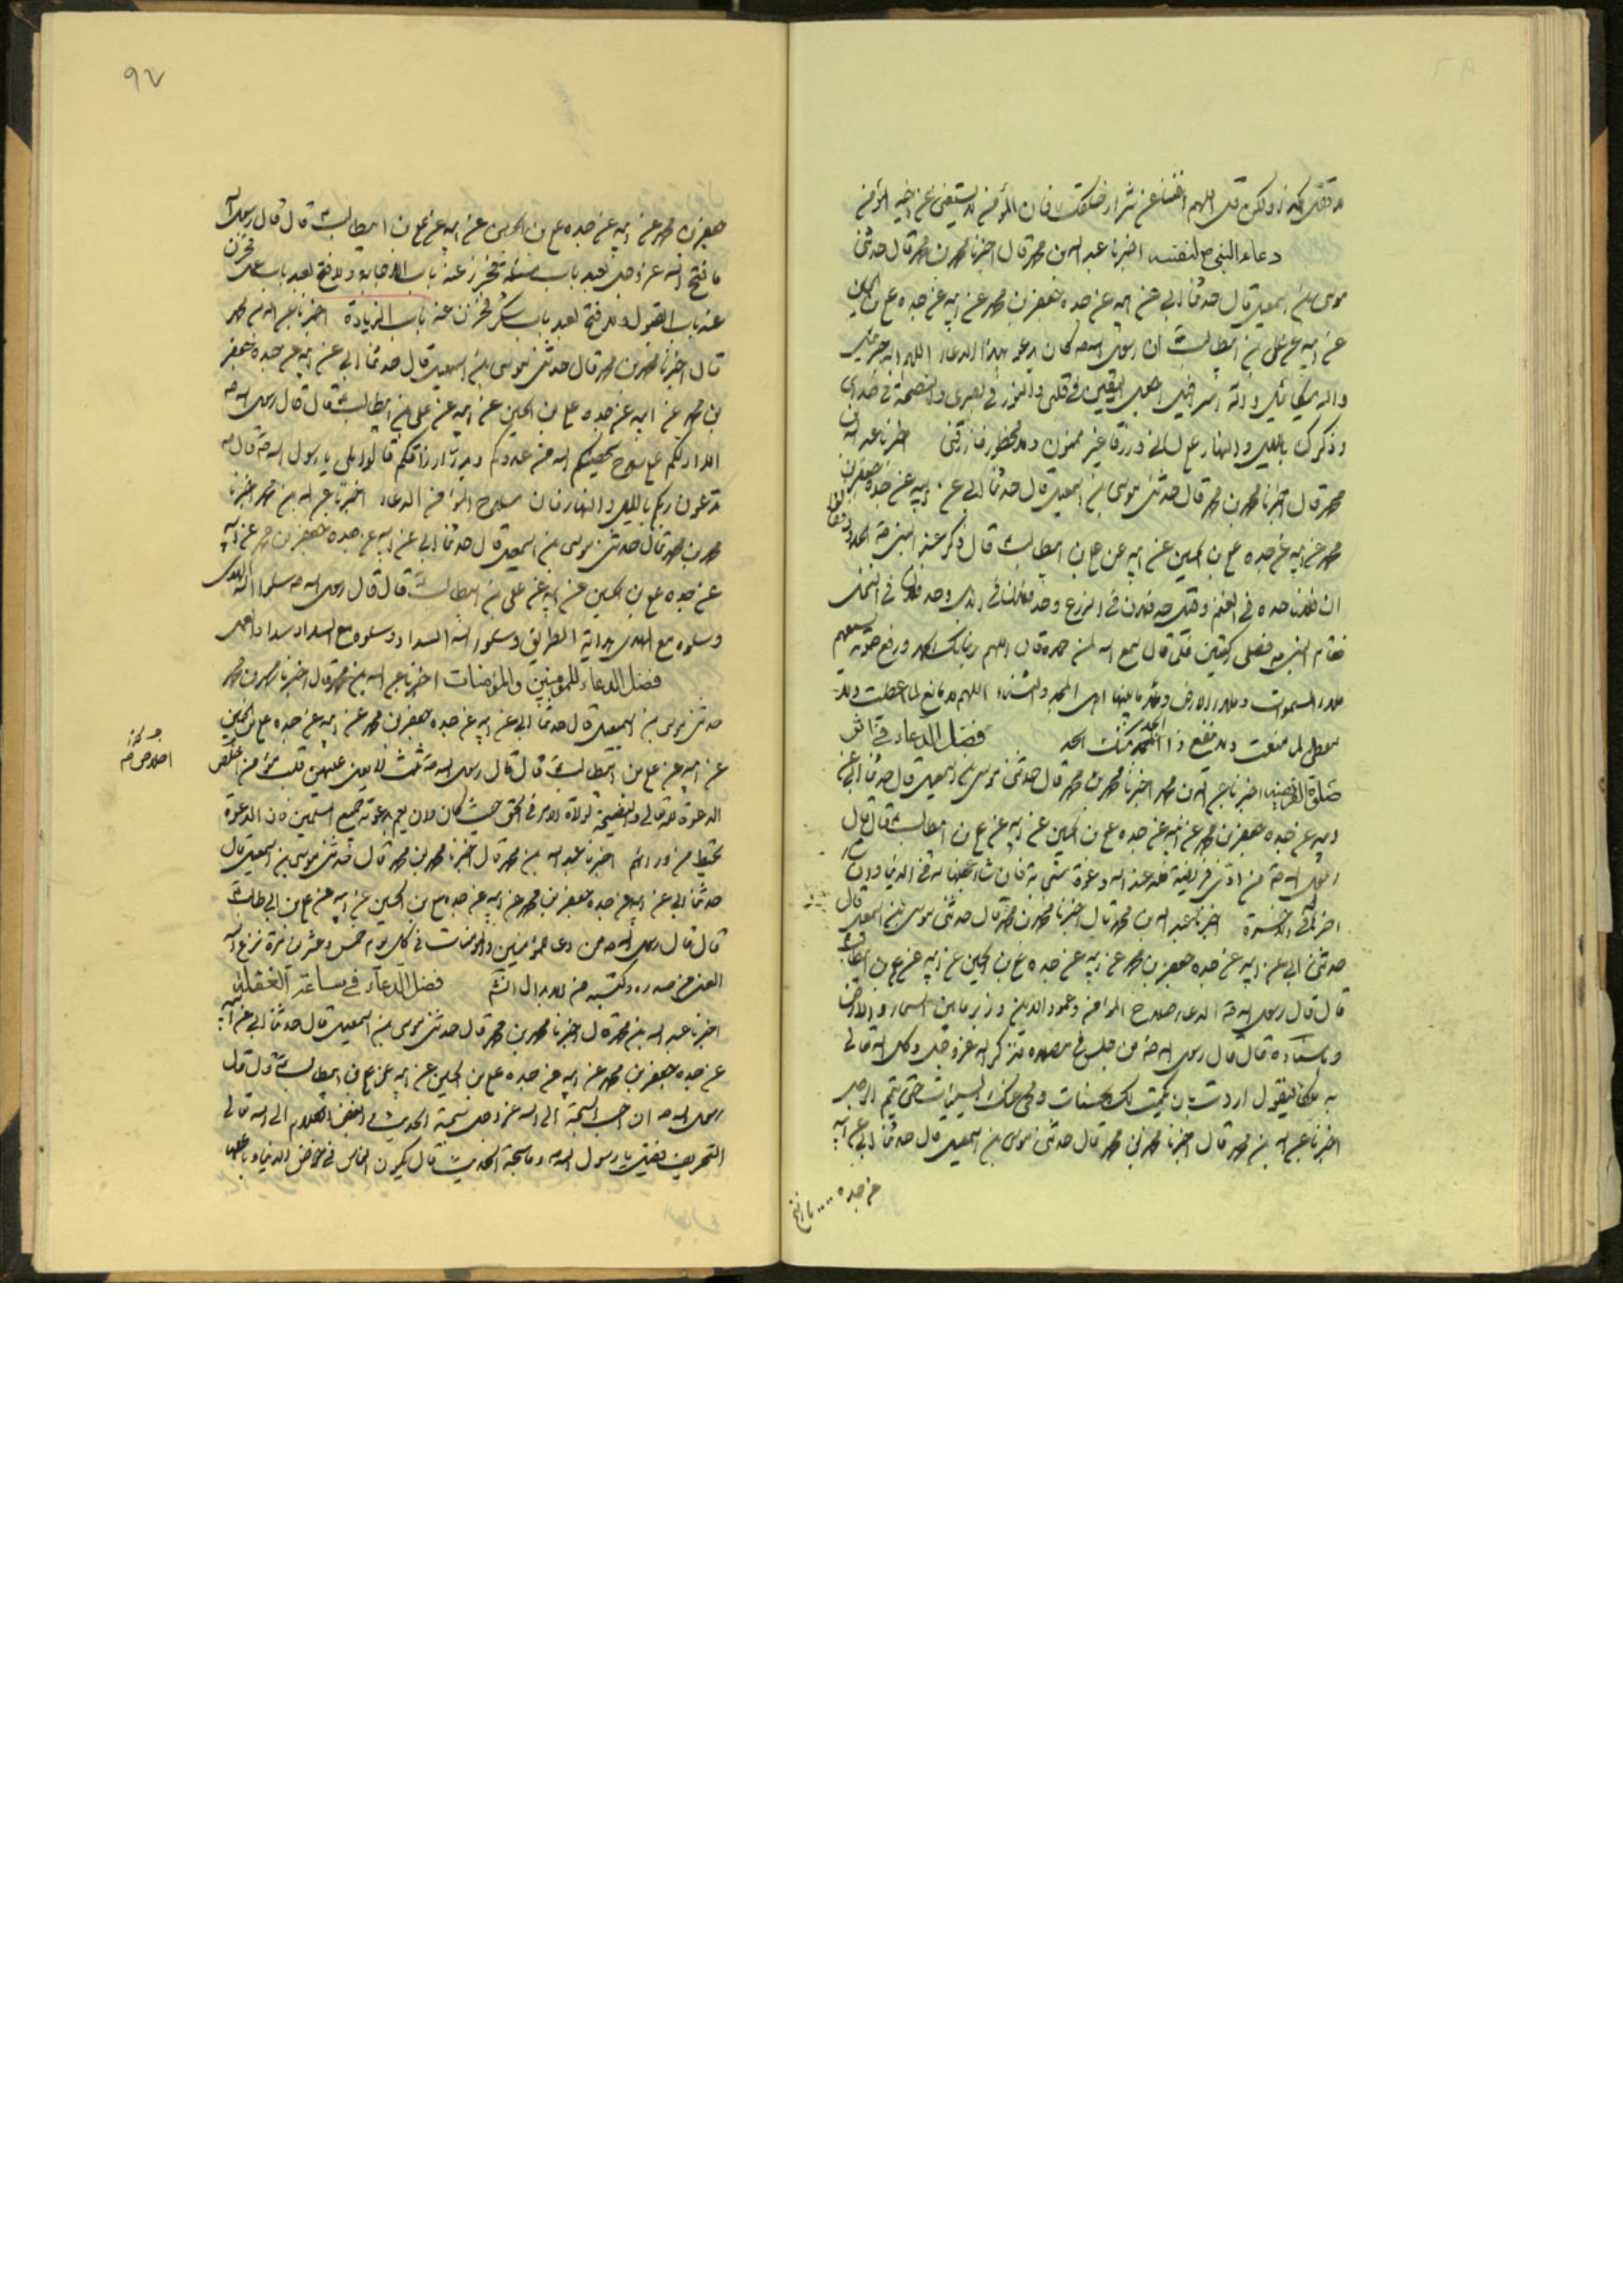 لا تقل هكذا ولكن قل اللهم اغننا عن شرار خلقك فان المؤمن لا يستغنى عن اخيه المؤمن
دعاء النبى ص لنفسه اخبرنا عبد الله بن محمد قال اخبرنا محمد بن محمد قال حدثنى
موسى بن اسمعيل قال حدثنا ابى عن ابيه عن جده جعفر بن محمد عن ابيه عن جده على بن الحسين
عن ابيه عن على بن ابيطالب ان رسول الله ص كان يدعو بهذا الدعاء اللهم اله جبرئيل
واله ميكائيل واله اسرافيل اجعل اليقين فى قلبى والنور فى بصرى والنصيحة فى صدرى
وذكرك بالليل والنهار على لسانى ورزقا غير ممنون ولا محظور فارزقنى اخبرنا عبد الله بن
محمد قال اخبرنا محمد بن محمد قال حدثنى موسى بن اسمعيل قال حدثنا ابى عن ابيه عن جده جعفر بن
محمد عن ابيه عن جده على بن الحسين عن ابيه عن على بن ابيطالب قال ذكر عند النبى ص الجدود فقالوا
ان فلانا جده فى الغنم وقيل جد فلان فى الزرع وجد فلان فى وجد فلان فى النخل
فقام النبى ص فصلى ركعتين فلما قال سمع الله لمن حمده قال اللهم ربنا لك الحمد ورفع صوته يسمعهم
ملاء السموات وملاء الارض وملاء ما بينهما اهل المجد والثناء اللهم لا مانع لما اعطيت ولا
معطى لما منعت ولا ينفع ذا الجد منك الجد فضل الدعاء فى اثر
صلوة الفريضه اخبرنا عبد الله بن محمد اخبرنا محمد بن محمد قال حدثنى موسى بن اسمعيل قال حدثنا ابى عن
ابيه عن جده جعفر بن محمد عن ابيه عن جده على بن الحسين عن ابيه عن على بن ابيطالب قال قال
رسول الله ص من ادى فريضة فله عند الله دعوة مستجابة فان شاء عجلها له فى الدنيا وان شاء
اخر له فى الاخرة اخبرنا عبد الله بن محمد قال اخبرنا محمد بن محمد قال حدثنى موسى بن اسمعيل قال
حدثنى ابى عن ابيه عن جده جعفر بن محمد عن ابيه عن جده على بن الحسين عن ابيه عن على بن ابيطالب
قال قال رسول الله ص الدعاء سلاح المؤمن وعمود الدين وزين ما بين السماء والارض
وباسناده قال قال رسول الله ص من جلس فى مصلاه يذكر الله عز وجل وكل الله تعالى
به ملكا فيقول ازددت يكتب لك الحسنات ومحى عنك السيئات حتى يتم
اخبرنا عبد الله بن محمد قال اخبرنا محمد بن محمد قال حدثنى موسى بن اسمعيل قال حدثنا ابى عن ابيه
عن جده
٩٧
جعفر بن محمد عن ابيه عن جده على بن الحسين عن ابيه عن على بن ابيطالب قال قال رسول الله
ما فتح الله عز وجل لعبد باب مسئلة فيخزن عنه باب الاجابة ولا فتح لعبد باب عمل فخزن
عنه باب القبول ولا فتح لعبد باب شكر فخزن عنه باب الزيادة اخبرنا عبد الله بن محمد
قال اخبرنا محمد بن محمد قال حدثنى موسى بن اسمعيل قال حدثنا ابى عن ابيه عن جده جعفر
بن محمد عن ابيه عن جده على بن الحسين عن ابيه عن على بن ابيطالب قال قال رسول الله ص
الا ادلكم على سلاح ينجيكم الله من عدوكم ويدر ارزاقكم قالوا بلى يا رسول الله ص قال ص
تدعون ربكم بالليل والنهار فان سلاح المؤمن الدعاء اخبرنا عبد الله بن محمد اخبرنا
محمد بن محمد قال حدثنى موسى بن اسمعيل قال حدثنا ابى عن ابيه عن جده جعفر بن محمد عن ابيه
عن جده على بن الحسين عن ابيه عن على بن ابيطالب قال قال رسول الله ص سلوا الله الهدى
وسلوه مع الهدى هداية الطريق وسلوا الله السداد وسلوه مع السداد سداد العمل
فضل الدعاء للمؤمنين والمؤمنات اخبرنا عبد الله بن محمد قال اخبرنا محمد بن محمد
حدثنى موسى بن اسمعيل قال حدثنا ابى عن ابيه عن جده جعفر بن محمد عن ابيه عن جده على بن الحسين
عن ابيه عن على بن ابيطالب قال قال رسول الله ص ثلث لا يغل عليهن قلب مؤمن اخلاص
الدعوة لله تعالى والنصيحة لولاة الامر فى الحق حيث كان وان يعم بدعوته جميع المسلمين فان الدعوة
تحيط من ورائهم اخبرنا عبد الله بن محمد قال اخبرنا محمد بن محمد قال حدثنى موسى بن اسمعيل قال
حدثنا ابى عن ابيه عن جده جعفر بن محمد عن ابيه عن جده على بن الحسين عن ابيه عن على بن ابى طالب
قال قال رسول الله ص من دعا للمؤمنين والمؤمنات فى كل يوم خمس وعشرين مرة نزع الله
الغل من صدره وكتبه من الابدال انشاء فضل الدعاء فى ساعة الغفلة
اخبرنا عبد الله بن محمد قال اخبرنا محمد بن محمد قال حدثنى موسى بن اسمعيل قال حدثنا ابى عن ابيه
عن جده جعفر بن محمد عن ابيه عن جده على بن الحسين عن ابيه عن على بن ابيطالب قال قال
رسول الله ص ان احب السبحة الى الله عز وجل سبحة الحديث وابغض الكلام الى الله تعالى
التحريف فقيل يا رسول الله وما سبحة الحديث قال يكون الناس فى خوض الدنيا وباطلها